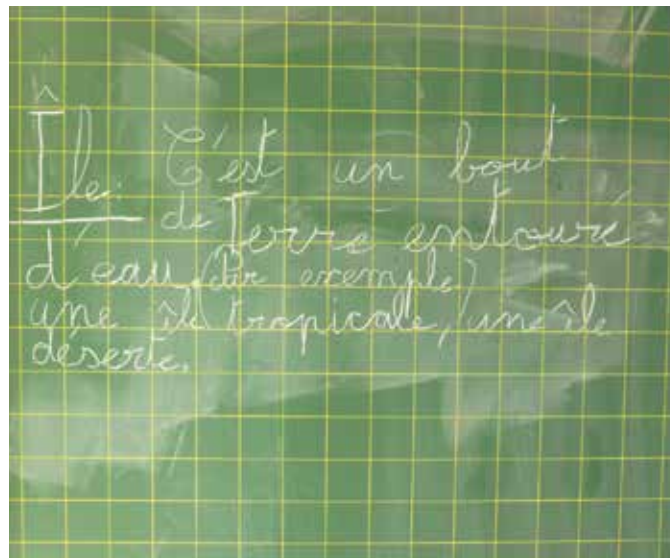 Île: C'est un bout
de Terre entouré
d'eau (Par exemple)
une île tropicale, une île
déserte.